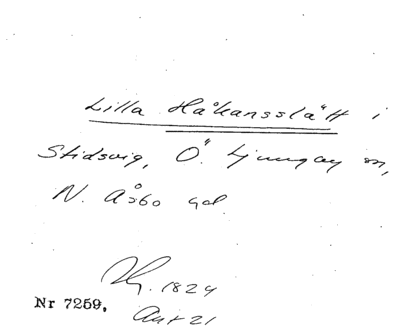 Lilla Håkansslätt i
Stidsvig, Ö. Ljungby sn,
N. Åsbo hd.
1824
Nr 7259.
Akt 21